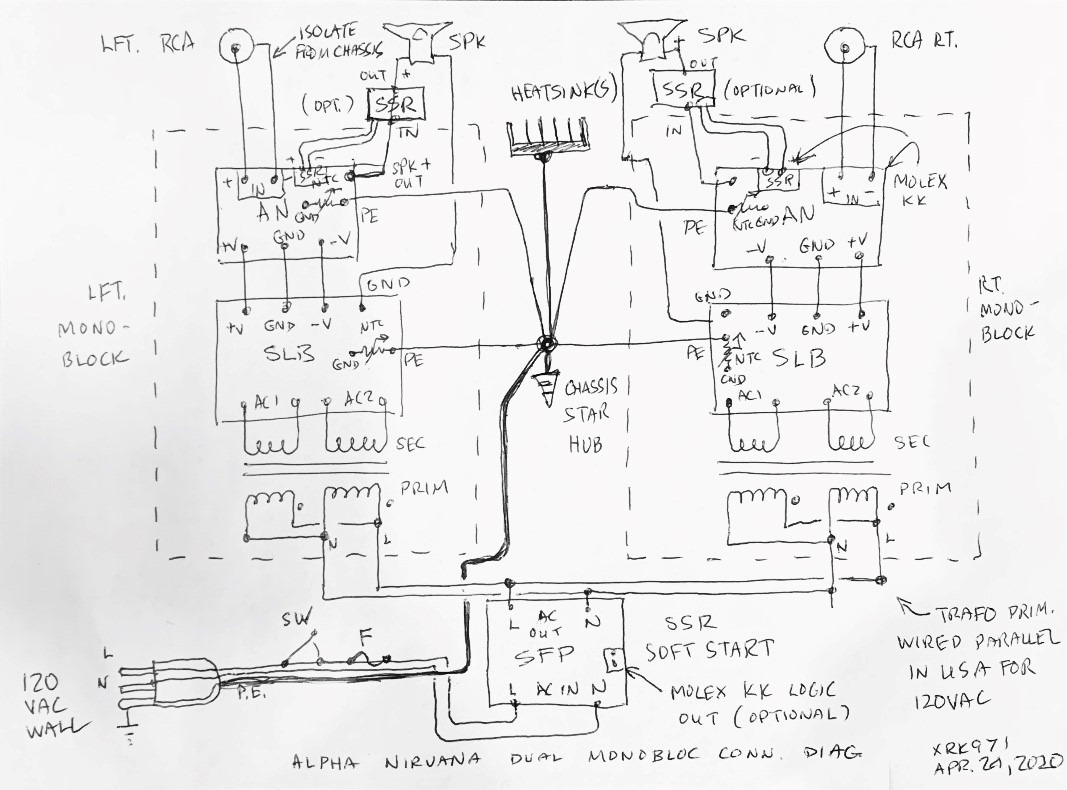 LFT. RCA
ISOLATE
FROM CHASSIS
SPK
OUT +
(OPT.)
SSR
IN
HEATSINK(S)
SPK
+
OUT
SSR
(OPTIONAL)
IN
RCA RT.
+ IN -
SSR
NTC
GND
AN
SPK+
OUT
PE
+V GND -V
GND
LFT.
MONO-
BLOCK
+V GND -V NTC
SLB
GND
PE
AC1 AC2
SEC
PRIM
N L
CHASSIS
STAR
HUB
SSR
+ IN -
MOLEX
KK
PE
NTC GND AN
-V GND +V
GND
RT.
MONO-
BLOCK
-V GND +V
PE
NTC SLB
GND
AC1 AC2
SEC
PRIM
N L
SW
F
L
N
120
VAC
WALL
P.E.
L AC OUT N
SFP
L AC IN N
SSR
SOFT START
MOLEX KK LOGIC
OUT (OPTIONAL)
TRAFO PRIM.
WIRED PARALLEL
IN USA FOR
120VAC
ALPHA NIRVANA DUAL MONOBLOC CONN. DIAG
XRK971
APR. 29, 2020